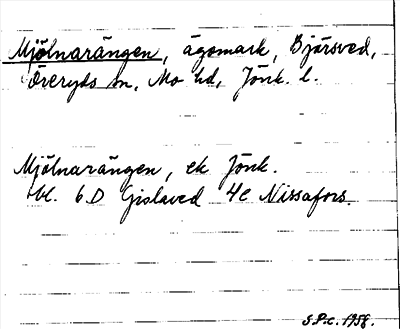 Mjölnarängen, ägomark, Bjärsved,
Öreryds sn, Mo hd, Jönk. l.
Mjölnarängen, ek Jönk.
bl. 6D Gislaved 4e Nissafors.
S.P.c. 1958.